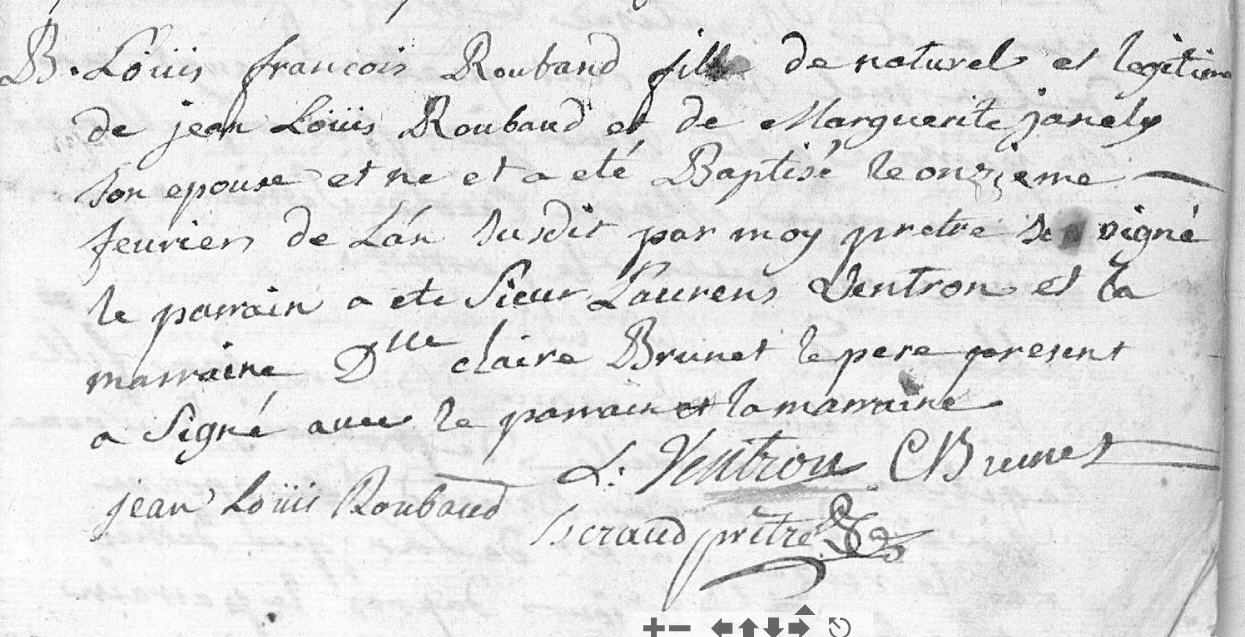 B. Loüis francois Roubaud fils de naturel et legitime
de jean Loüis Roubaud et de Marguerite janely
son epouse et ne et a eté Baptisé le onzieme
feurier de Lan susdit par moy pretre signé
le parrain a ete Sieur Laurens Ventron et la
marraine Dlle claire Brunet le pere present
a Signé avec le parrain et la marraine
L. Ventron CBrunet
jean Loüis Roubaud prêtre